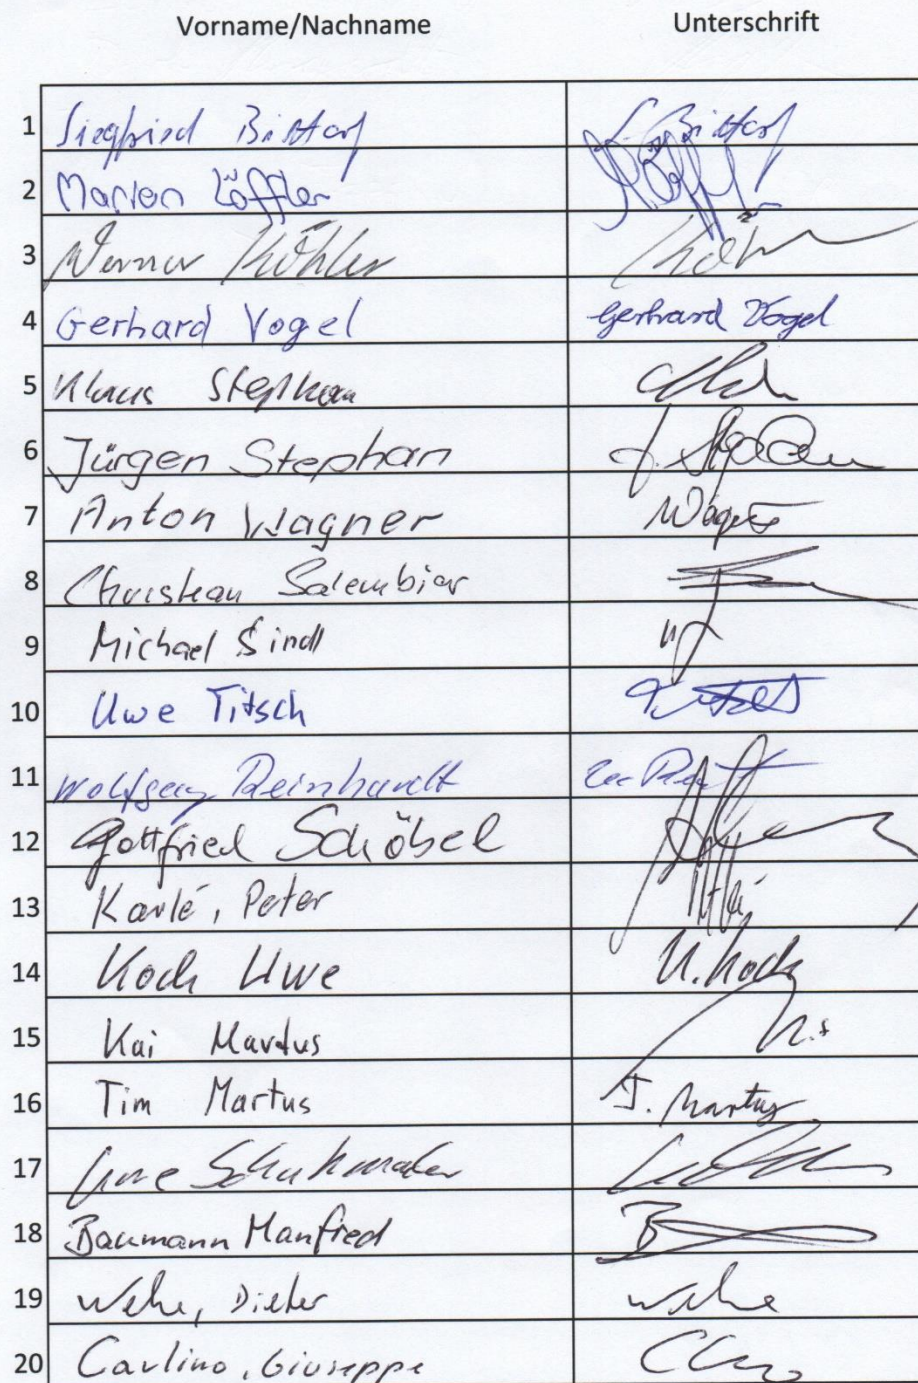 Vorname/Nachname Unterschrift
1 Siegfried Bittorf S. Bittorf
2 Marion Löffler
3 Werner Köhler
4 Gerhard Vogel Gerhard Vogel
5 Klaus Stephan
6 Jürgen Stephan J. Stephan
7 Anton Wagner
8 Christian
9 Michael
10 Uwe Titsch
11 Wolfgang Reinhardt
12 Gottfried Schöbel
13 Karlé, Peter
14 Koch Uwe U. Koch
15 Kai Martus
16 Tim Martus T. Martus
17 Uwe Schuhmacher
18 Baumann Manfred
19 Wehe, Dieter Wehe
20 Carlino, Giuseppe